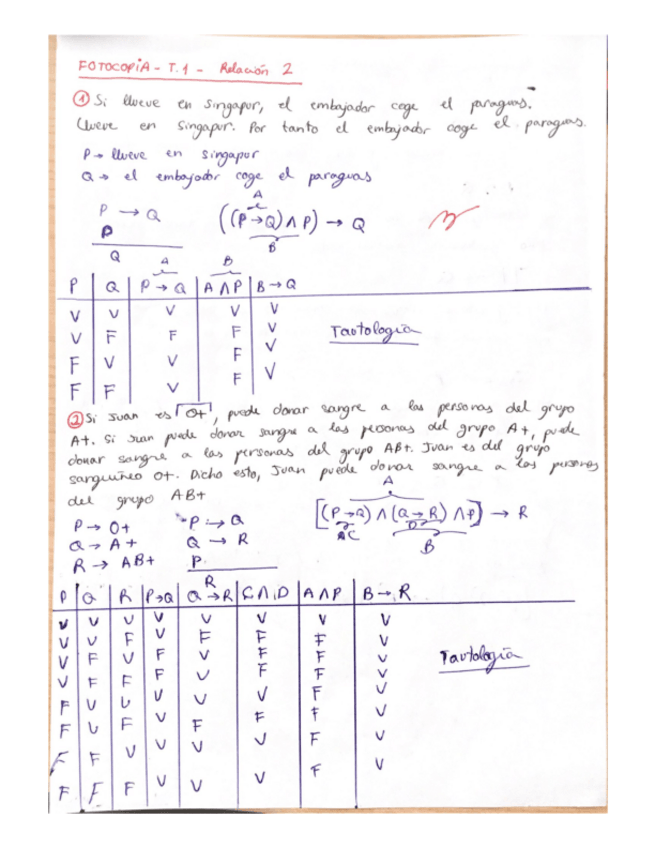 FOTOCOPIA - T.1 - Relación 2
① Si llueve en Singapur, el embajador coge el paraguas.
Llueve en Singapur. Por tanto el embajador coge el paraguas.
P → llueve en Singapur
Q → el embajador coge el paraguas
A
P → Q ((P→Q) ∧ P) → Q
P B
Q A B
P Q P → Q A ∧ P B → Q
V V V V V
V F F F V
F V V F V
F F V F V
Tautología
② Si Juan es O+, puede donar sangre a las personas del grupo
A+. Si Juan puede donar sangre a las personas del grupo A+, puede
donar sangre a las personas del grupo AB+. Juan es del grupo
sanguíneo O+. Dicho esto, Juan puede donar sangre a las personas
del grupo AB+
A
P → O+ P → Q [(P→Q) ∧ (Q→R) ∧ P] → R
Q → A+ Q → R C D
R → AB+ P B
R
P Q R P→Q Q→R C∧D A∧P B→R
V V V V V V V V
V V F V F F F V
V F V F V F F V
V F F F V F F V
F V V V V V F V
F V F V F F F V
F F V V V V F V
F F F V V V F V
Tautología